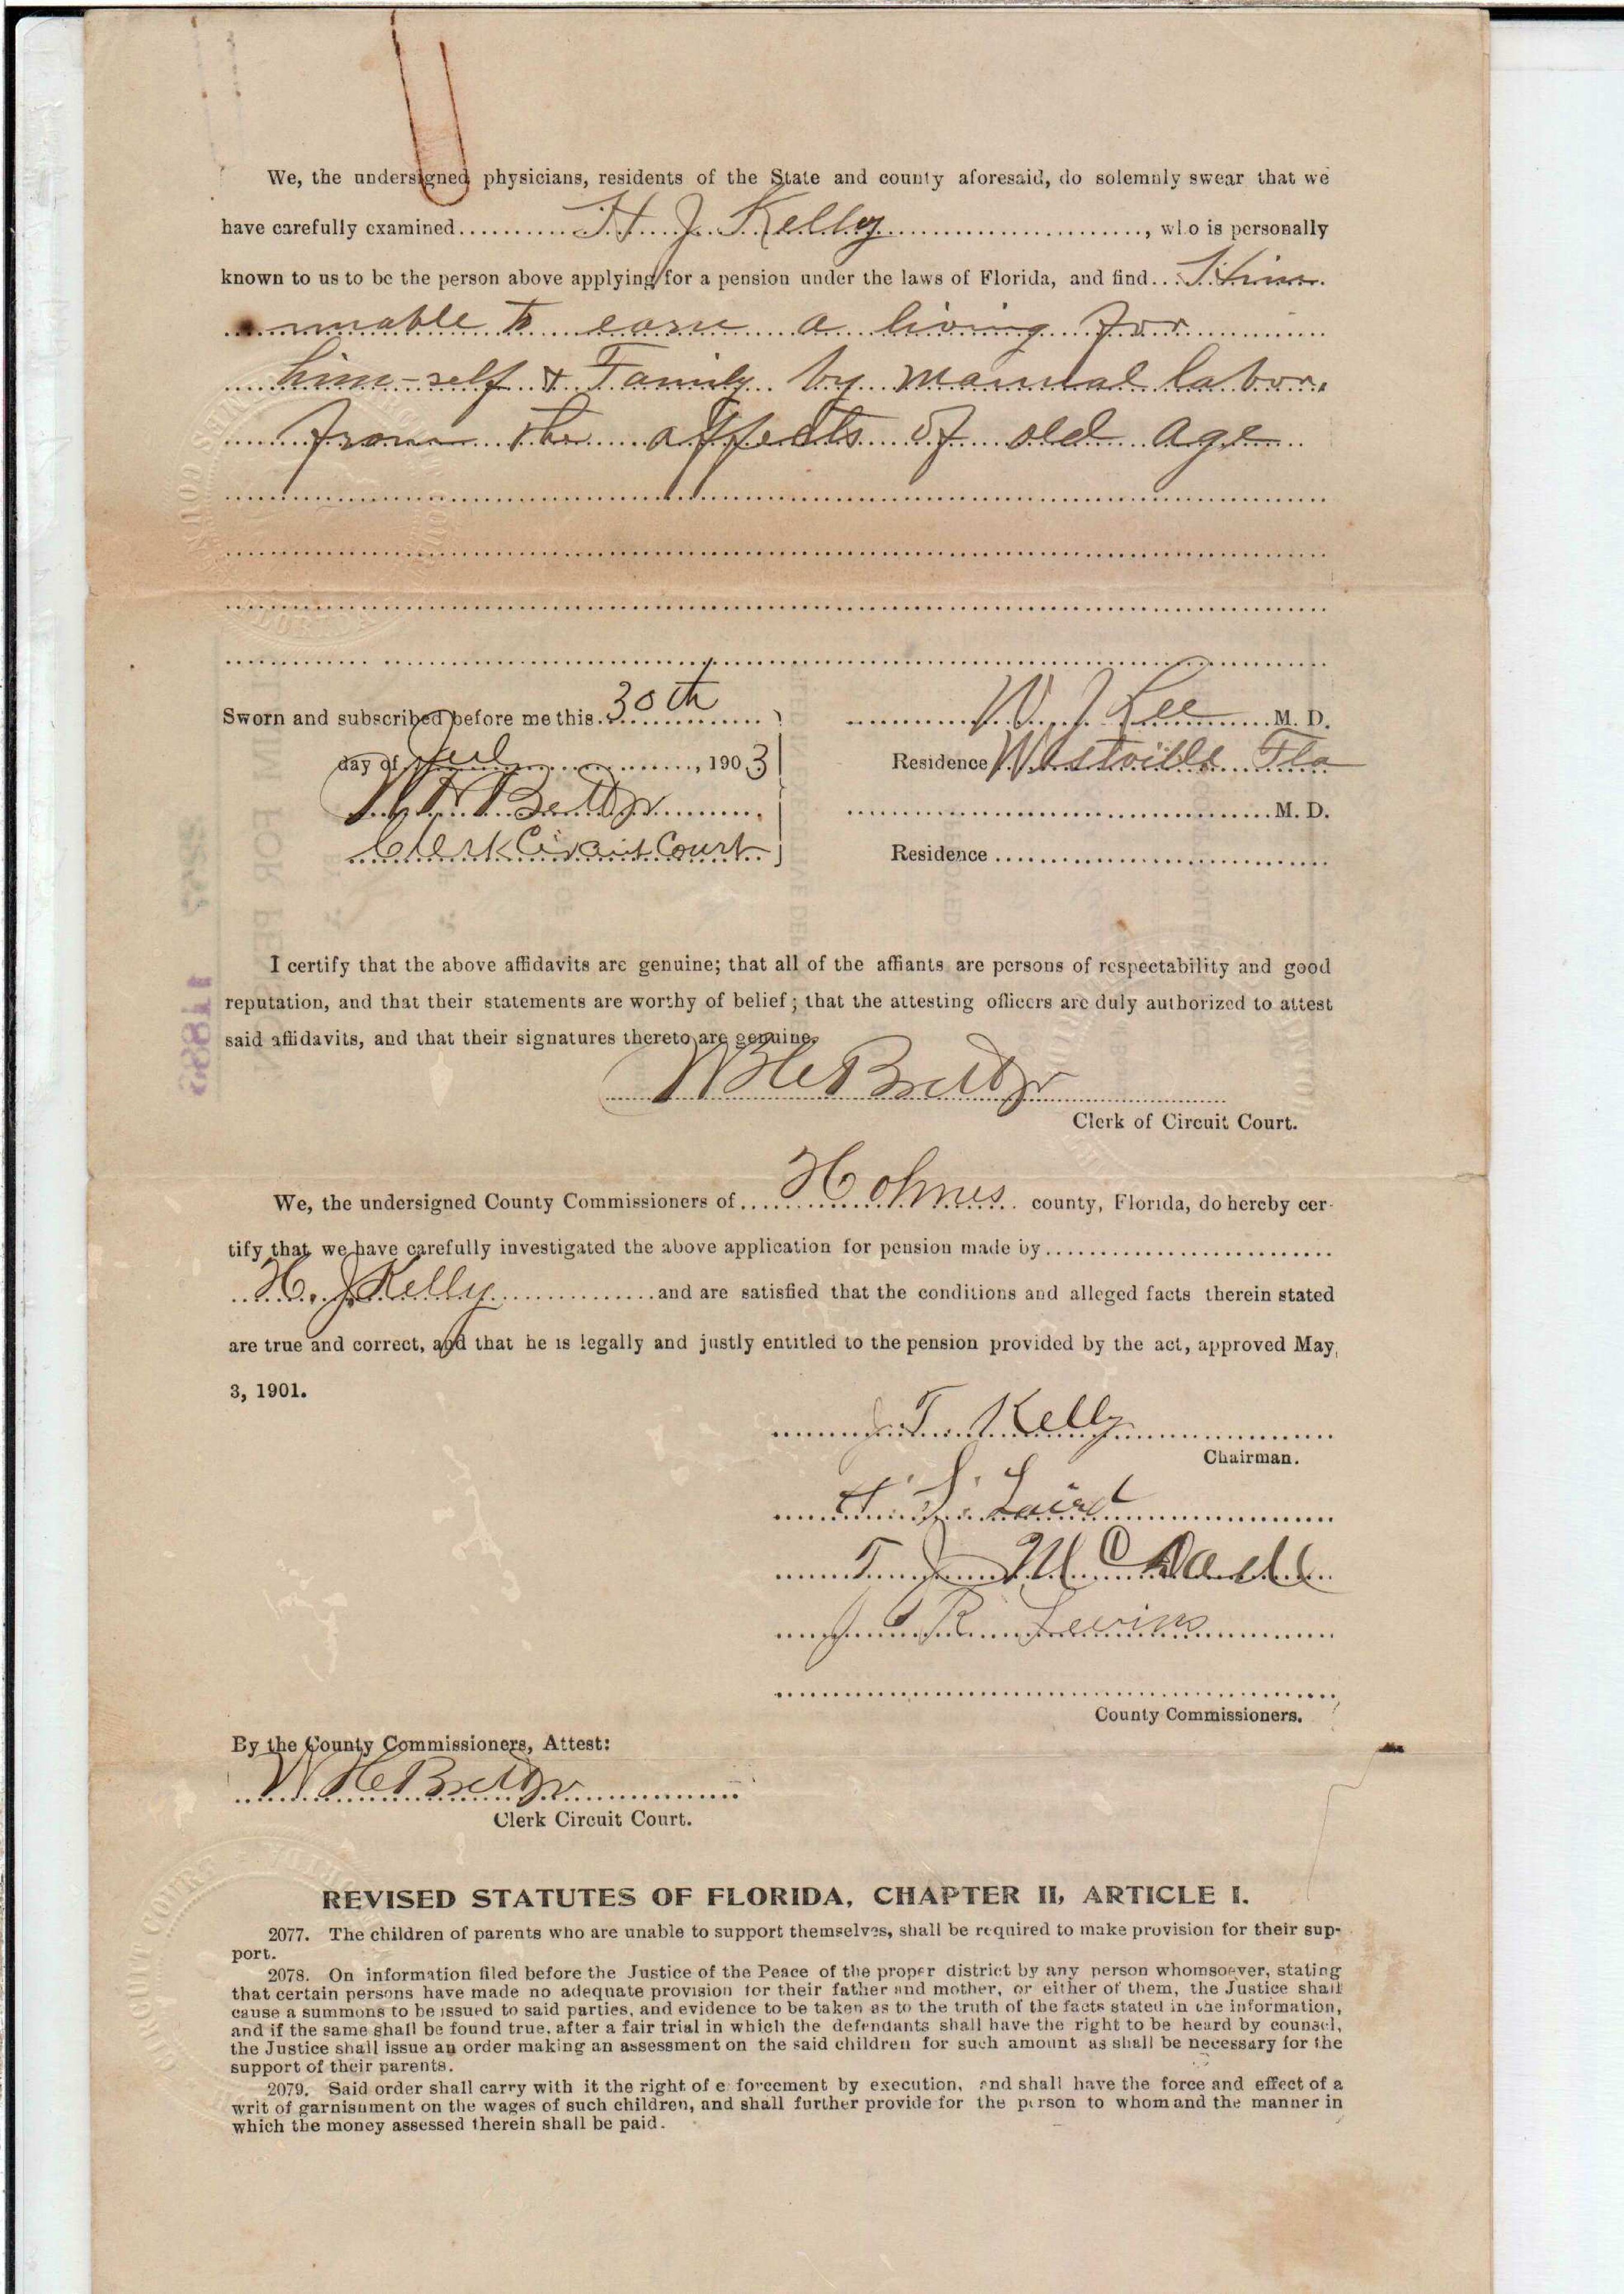 We, the undersigned physicians, residents of the State and county aforesaid, do solemnly swear that we
have carefully examined H J Kelly, who is personally
known to us to be the person above applying for a pension under the laws of Florida, and find Him
unable to earn a living for
him-self & Family by manual labor.
from the affects of old age
Sworn and subscribed before me this 30th
day of July, 1903
Clerk Circuit Court
W. J. Lee M. D.
Residence Westville Fla
M. D.
Residence
I certify that the above affidavits are genuine; that all of the affiants are persons of respectability and good
reputation, and that their statements are worthy of belief; that the attesting officers are duly authorized to attest
said affidavits, and that their signatures thereto are genuine.
Clerk of Circuit Court.
We, the undersigned County Commissioners of Holmes county, Florida, do hereby cer-
tify that we have carefully investigated the above application for pension made by
H. J Kelly and are satisfied that the conditions and alleged facts therein stated
are true and correct, and that he is legally and justly entitled to the pension provided by the act, approved May
3, 1901.
J. T. Kelly
Chairman.
Laird
T J
J R Levins
County Commissioners.
By the County Commissioners, Attest:
Clerk Circuit Court.
REVISED STATUTES OF FLORIDA, CHAPTER II, ARTICLE I.
2077. The children of parents who are unable to support themselves, shall be required to make provision for their sup-
port.
2078. On information filed before the Justice of the Peace of the proper district by any person whomsoever, stating
that certain persons have made no adequate provision for their father and mother, or either of them, the Justice shall
cause a summons to be issued to said parties, and evidence to be taken as to the truth of the facts stated in the information,
and if the same shall be found true, after a fair trial in which the defendants shall have the right to be heard by counsel,
the Justice shall issue an order making an assessment on the said children for such amount as shall be necessary for the
support of their parents.
2079. Said order shall carry with it the right of enforcement by execution, and shall have the force and effect of a
writ of garnishment on the wages of such children, and shall further provide for the person to whom and the manner in
which the money assessed therein shall be paid.